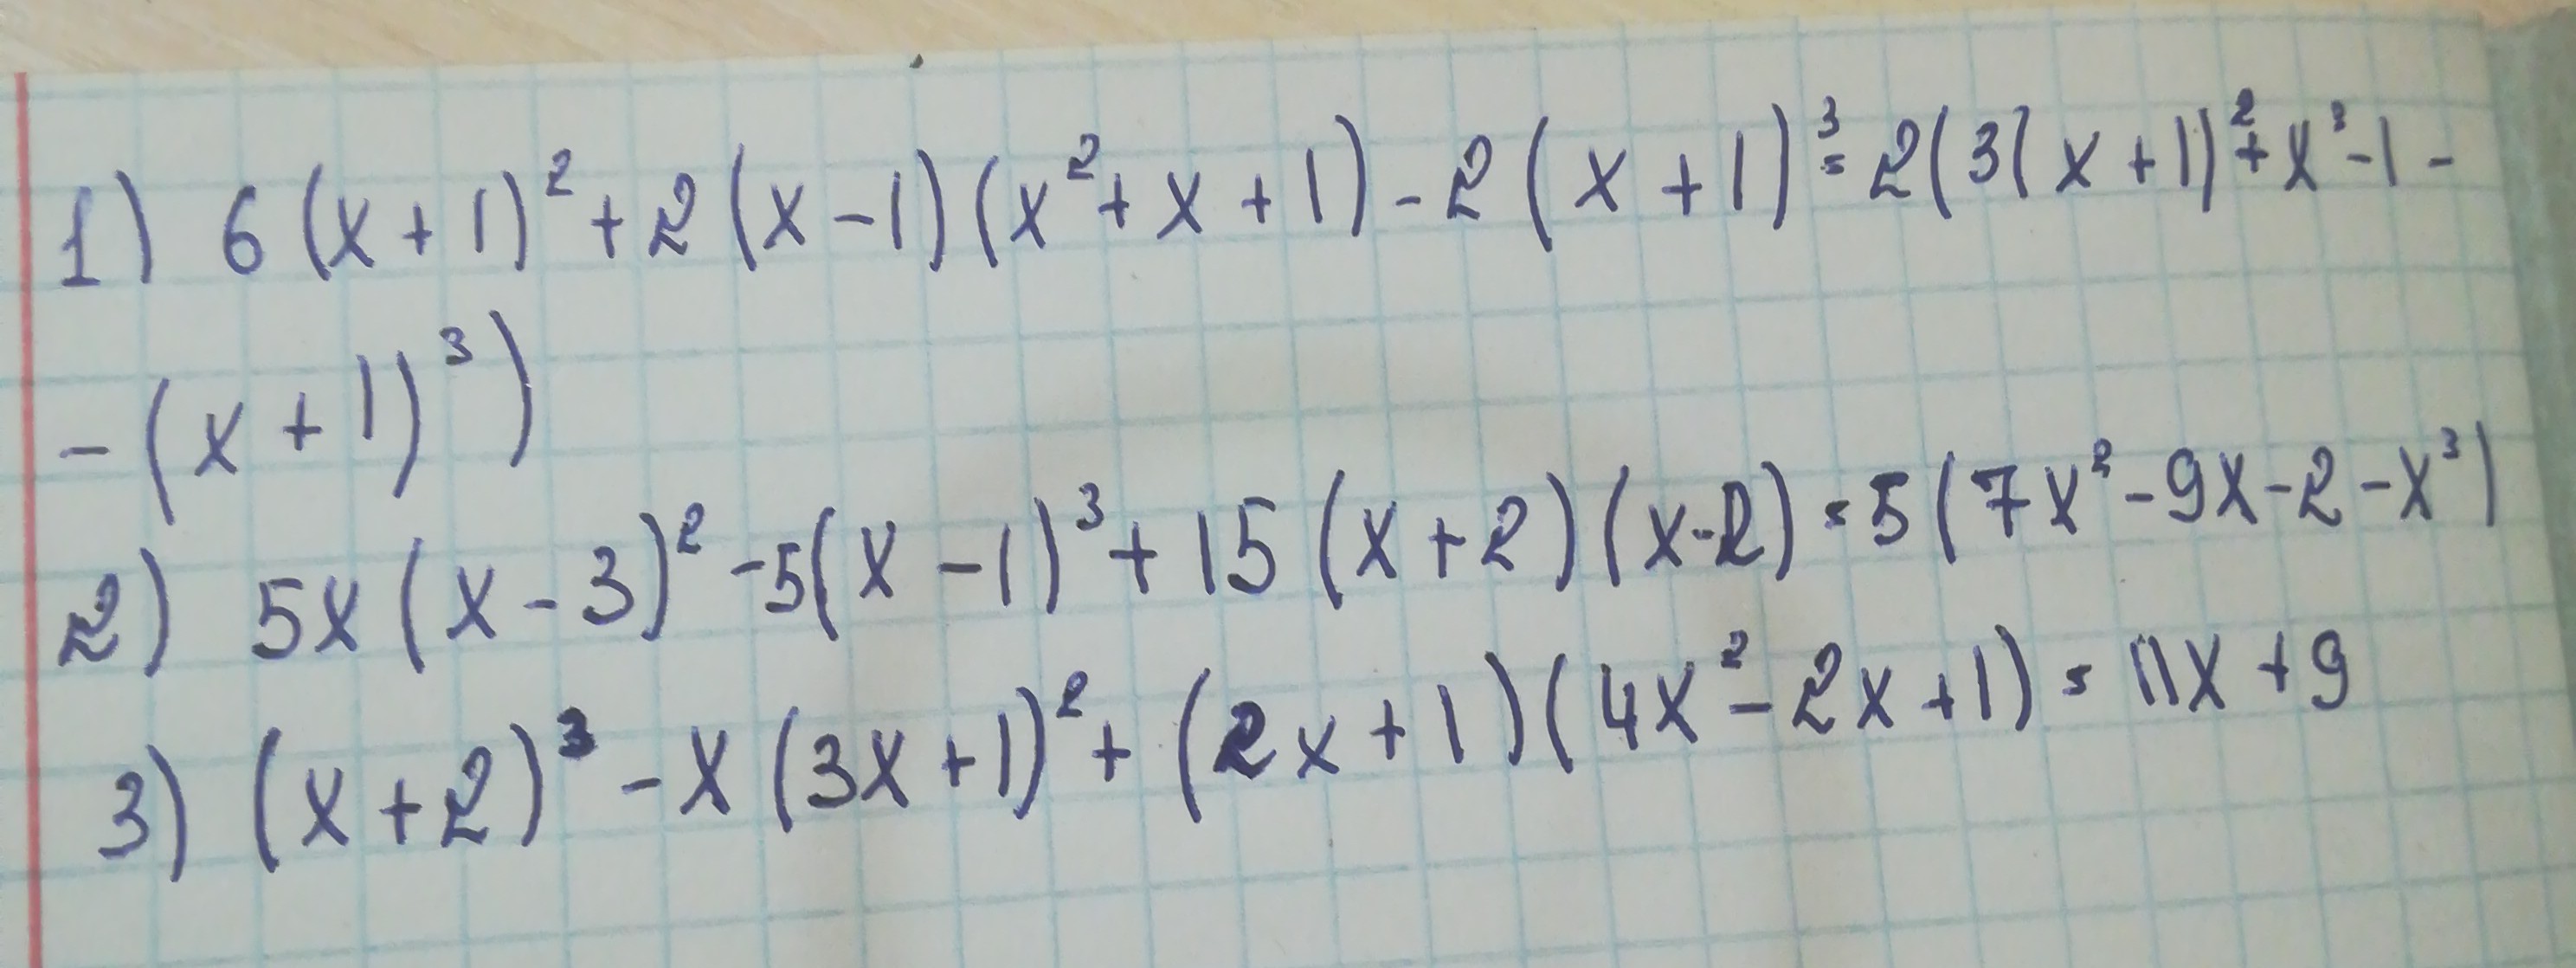 1) 6(x+1)² + 2(x-1)(x²+x+1) - 2(x+1)³ = 2(3(x+1)² + x³ - 1 -
- (x+1)³)
2) 5x(x-3)² - 5(x-1)³ + 15(x+2)(x-2) = 5(7x² - 9x - 2 - x³)
3) (x+2)³ - x(3x+1)² + (2x+1)(4x² - 2x + 1) = 11x + 9